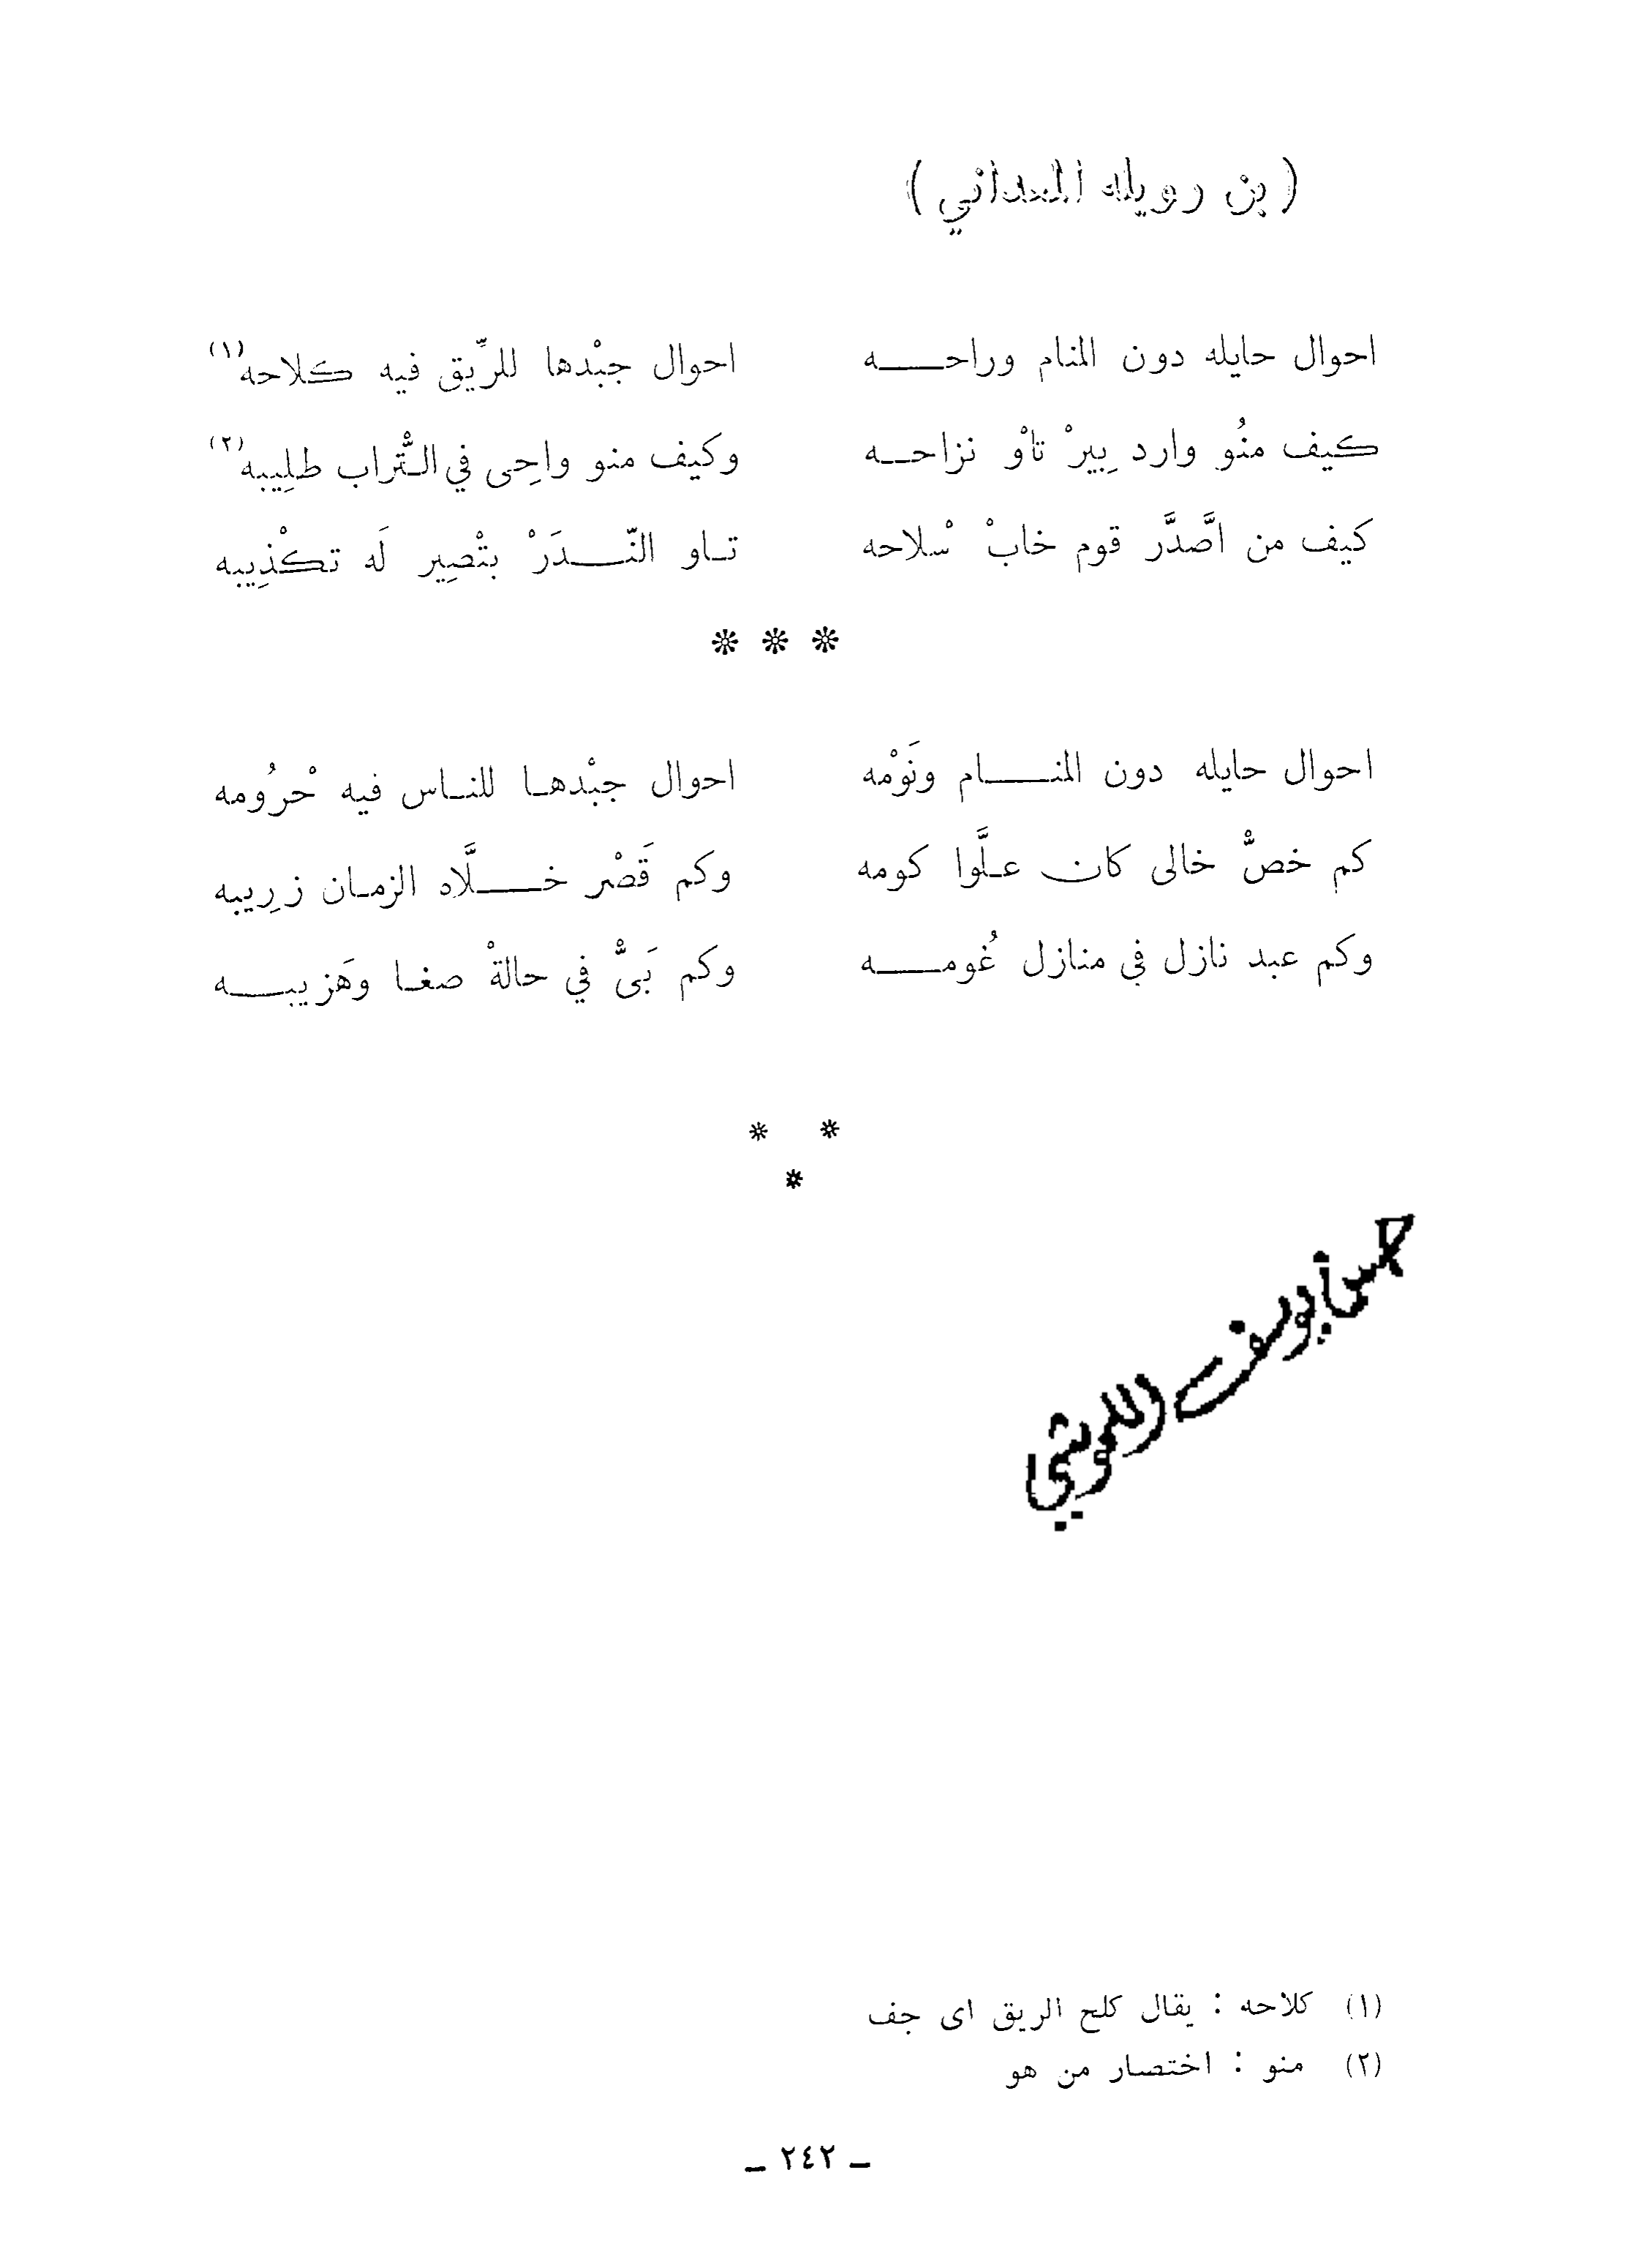 ( بن رويله المعداني )
احوال حايله دون المنام وراحـــه احوال جبْدها للرِّيق فيه كلاحه(١)
كيف منُو وارد بِيرْ تاوْ نزاحــه وكيف منو واحِى في التّْراب طلِيبه(٢)
كيف من اصَّدَّر قوم خابْ سْلاحه تـاو النّـــدَرْ بتْصِير لَه تكْذِيبه
* * *
احوال حايله دون المنـــام ونَوْمه احوال جبْدهـا للنـاس فيه حْرُومه
كم خصّْ خالى كان عـلَّوا كومه وكم قَصْر خـــلَّاه الزمـان زرِيبه
وكم عبد نازل في منازل غُومـــه وكم بَىّْ في حالةْ صغـا وهَزيبـــه
* *
*
حسن يوسف اللموشي
(١) كلاحه : يقال كلح الريق اى جف
(٢) منو : اختصار من هو
ـ ٢٤٢ ـ